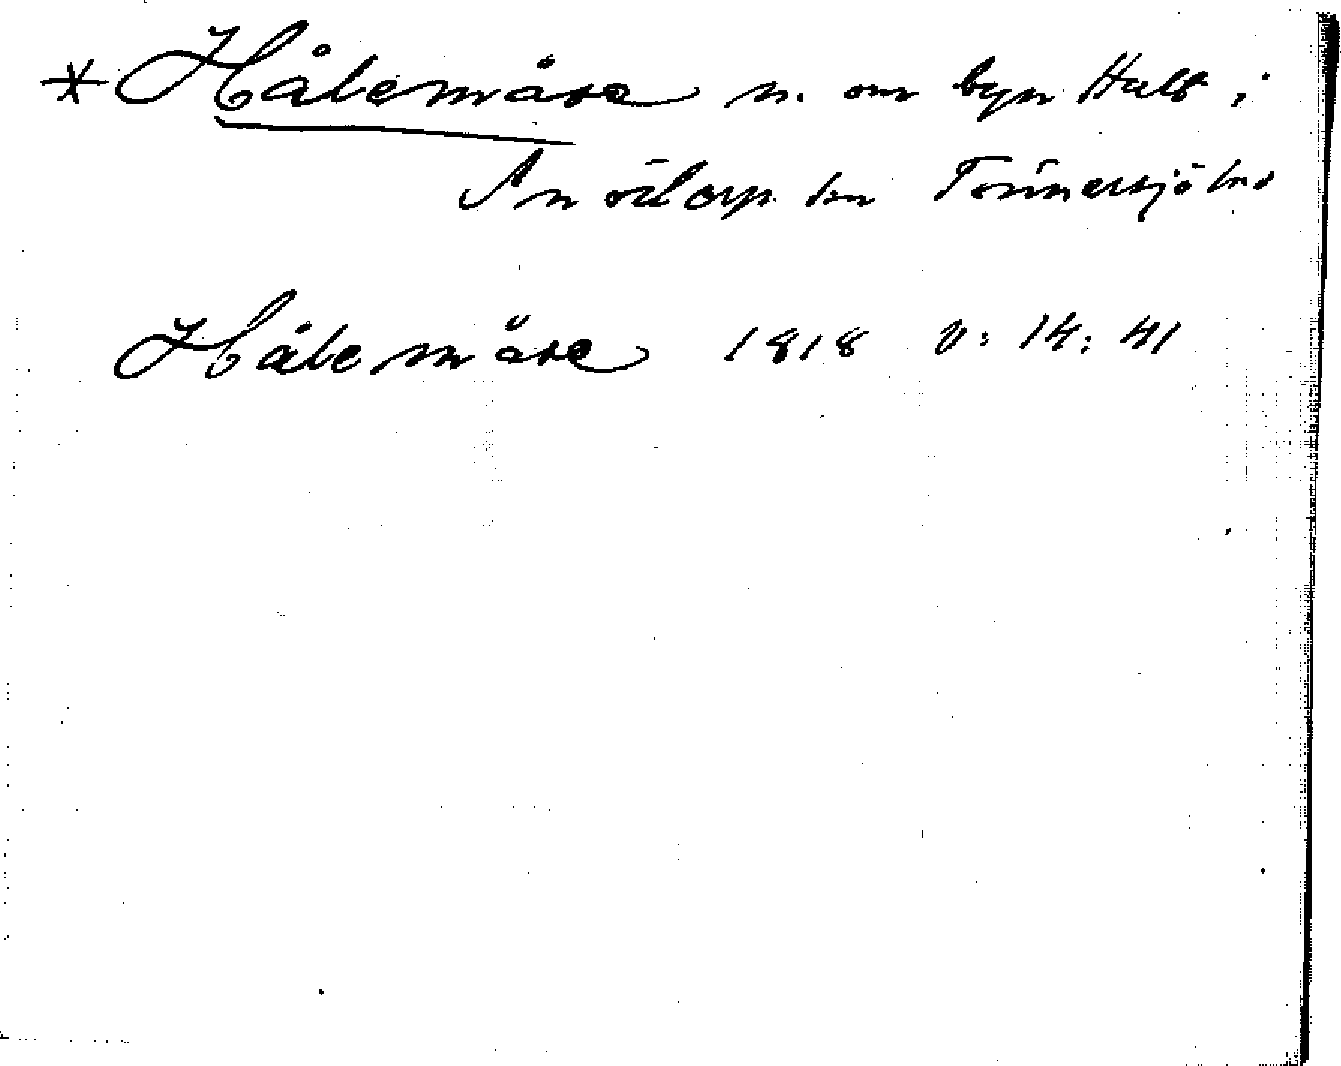 * Hålemåse n. om byn Hult i
Snöstorp sn Tönnersjö hd
Hålemåse 1818 v: 14: 41